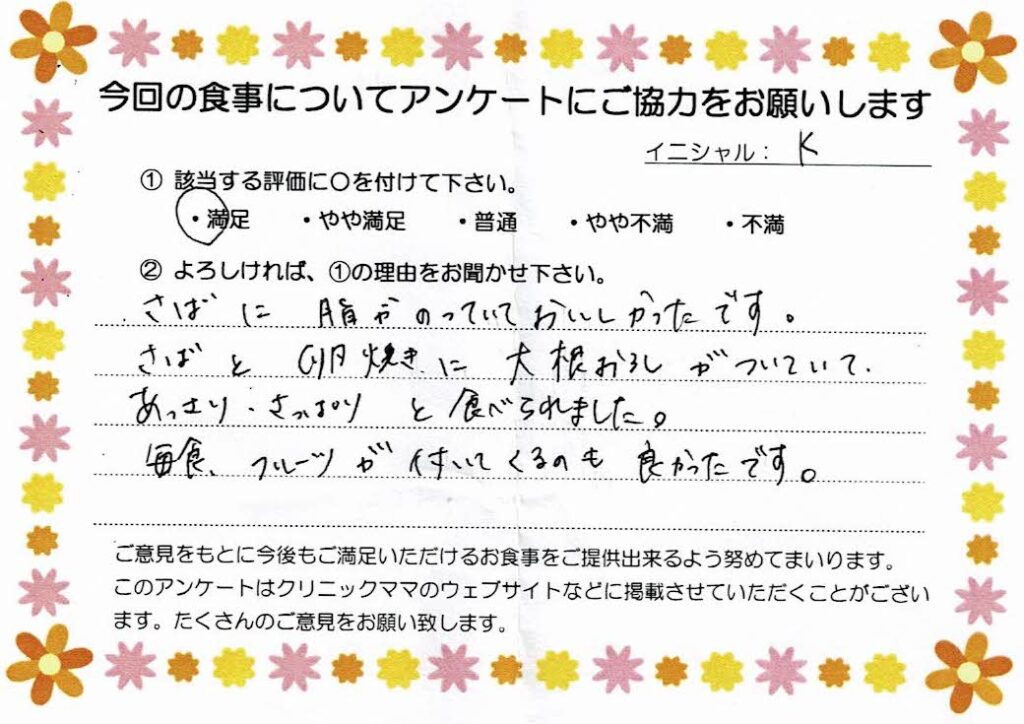 今回の食事についてアンケートにご協力をお願いします
イニシャル： K
① 該当する評価に○を付けて下さい。
・満足 ・やや満足 ・普通 ・やや不満 ・不満
② よろしければ、①の理由をお聞かせ下さい。
さばに 脂がのっていておいしかったです。
さばと 卵焼きに 大根おろしがついていて、
あっさり・さっぱり と食べられました。
毎食、フルーツが付いてくるのも 良かったです。
ご意見をもとに今後もご満足いただけるお食事をご提供出来るよう努めてまいります。
このアンケートはクリニックママのウェブサイトなどに掲載させていただくことがござい
ます。たくさんのご意見をお願い致します。